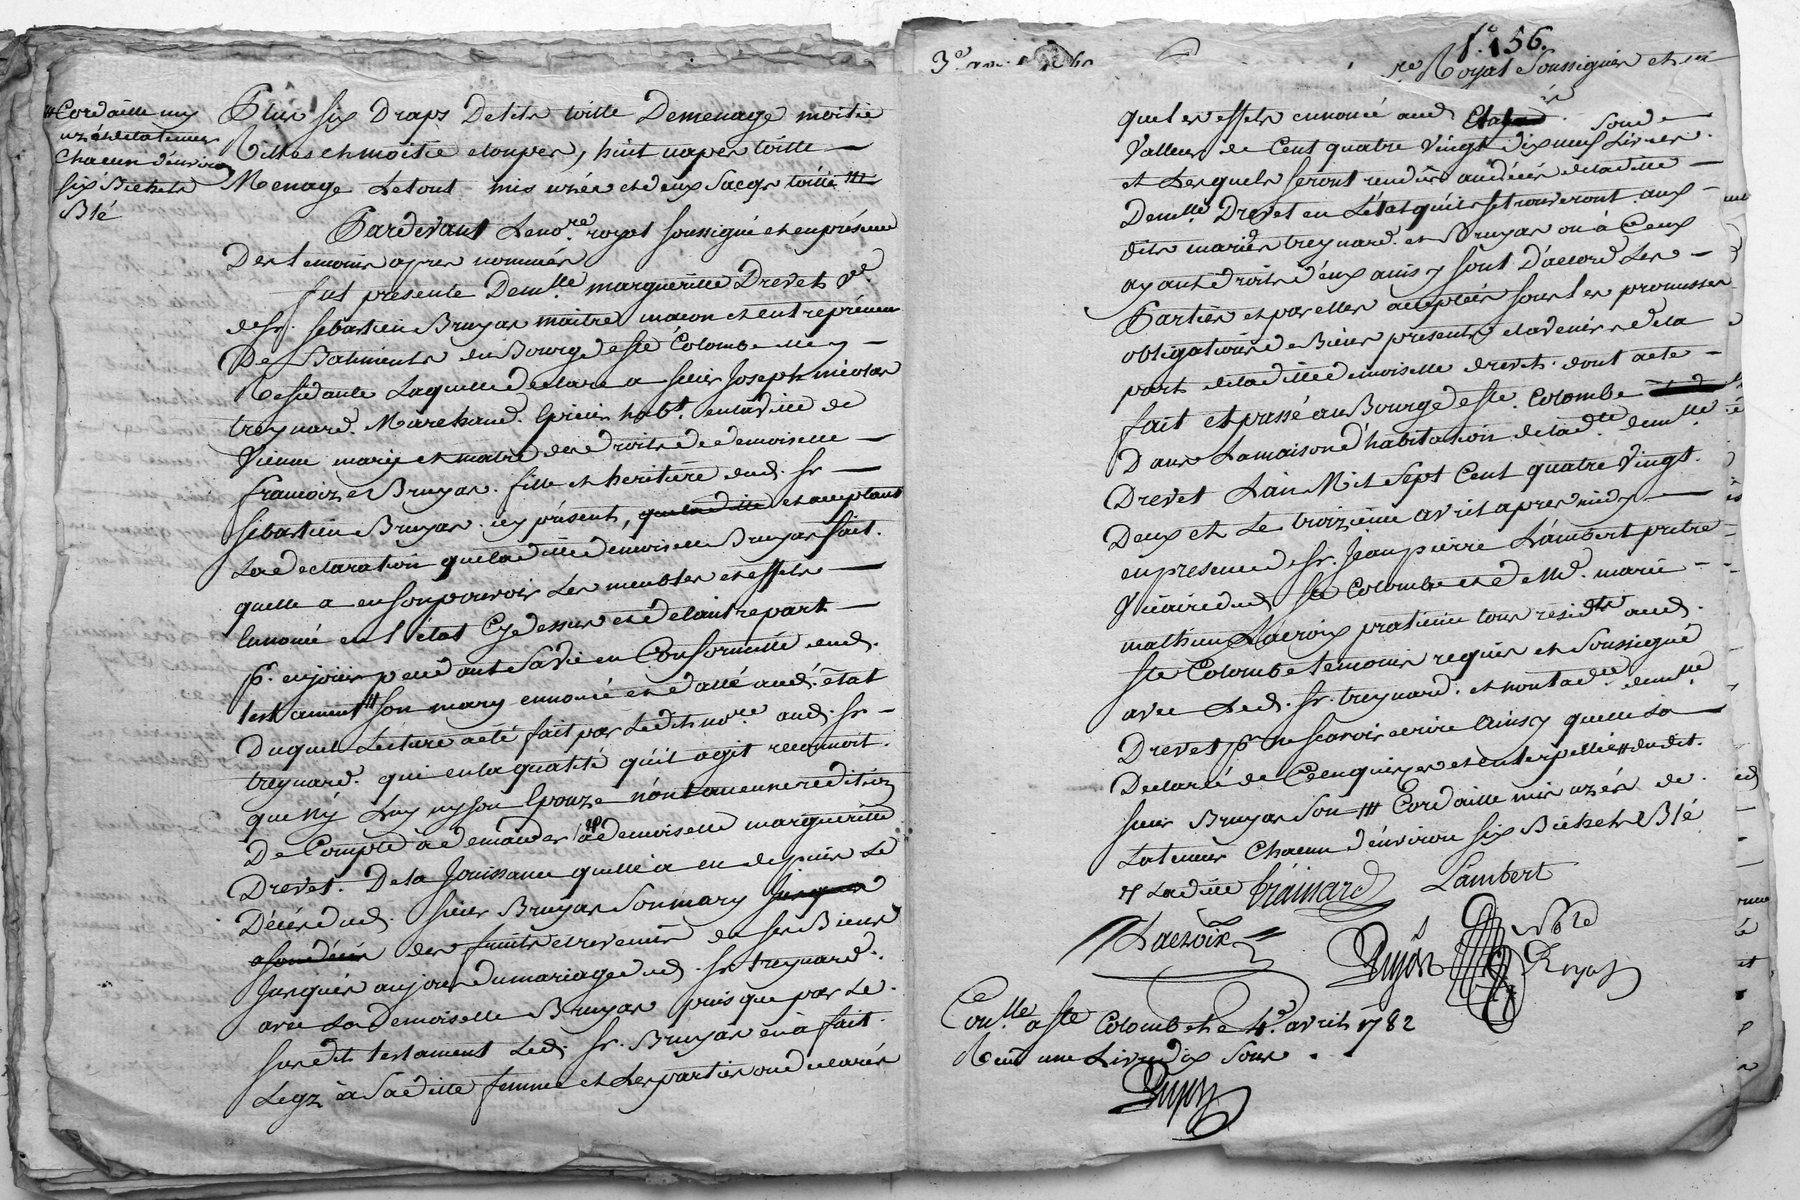 # Cordaille mis
uzés de la teneur
Chacun d'environ
six Bichets
Blé
Plus six Draps de lits toille De menage moitié
Rittes et moitié etoupes, huit napes toille
Menage Le tout mis uzée et deux Sacqs toille #
Pardevant Le no.re royal soussigné et en présence
Des temoins apres nommés
fut presente Demlle margueritte Drevet Ve
de Sr. sebastien Bruyas maitre macon et entrepreneur
De Batiments du Bourg de ste Colombe
Residante Laquelle declare a sieur Joseph nicolas
treynard. Marchand Epicier habt. en la ville de
Vienne mary et maitre des droits de demoiselle
francoize Bruyas. fille et heritiere dud. Sr
sebastien Bruyas. icy présent, et acceptant
La declaration que la ditte demoiselle Bruyas fait.
quelle a en son pouvoir Les meubles et effets
Ennoncé en l'état Cy dessus et de l'autre part
pr. en jouir pendant sa vie en Conformitté dud.
testament # son mary ennoncé et datté aud. état
Duquel Lecture a eté fait par Ledit nore aud. Sr
treynard. qui en la qualité qu'il agit reconnoit.
que ny Luy ny son Epouze n'ont aucune reddition
De Compte a demander a demoiselle margueritte
Drevet. De la Jouissance quelle a eu depuis Le
Décés dud. sieur Bruyas Son mary
des fruits et revenus de ses Biens
Jusques au jour du mariage dud. Sr treynard.
avec La demoiselle Bruyas puisque par Le
susdit testament Led. Sr. Bruyas en a fait.
Legz à Sa ditte femme et Les parties ont declarés
fo. 156.
3e avril
re Royal Soussignés et
que les effets ennoncé aud Etat sont de
Valleur de Cent quatre Vingt dix neuf Livres
et Lesquels seront rendus au décés de la ditte
Demlle Drevet en L'état qu'ils se trouveront aux
dits mariés treynard. et Bruyas ou à Ceux
ayant droits d'eux ainsy sont D'accord Les
Parties et par elles acceptées sous les promesses
obligations de Biens presents et avenir de la
part de la ditte demoiselle drevet. dont acte
fait et passé au Bourg de ste. Colombe
Dans La maison d'habitation de la dtte demlle
Drevet L'an Mil Sept Cent quatre Vingt.
Deux et Le troizieme avril apres midy
en presence de Sr. Jean pierre Lambert pretre
Vicaire dud ste Colombe et de Md. marie
mathieu Lacroix praticien tous residts aud.
ste Colombe temoins requis et Soussigné
avec Led. Sr. treynard. et non lad. demlle
Drevet pr ne scavoir ecrire ainsy quelle La
Declaré de Ce enquize et interpellée # dudit.
sieur Bruyas Son # Cordaille mis uzés de
La teneur Chacun d'environ six Bichets Blé
# La ditte trainard Lambert
Lacroix Dujon nore
Royal
Coulle a ste Colombe le 4e avril 1782
Reçu une Livre dix Sous.
Dujon